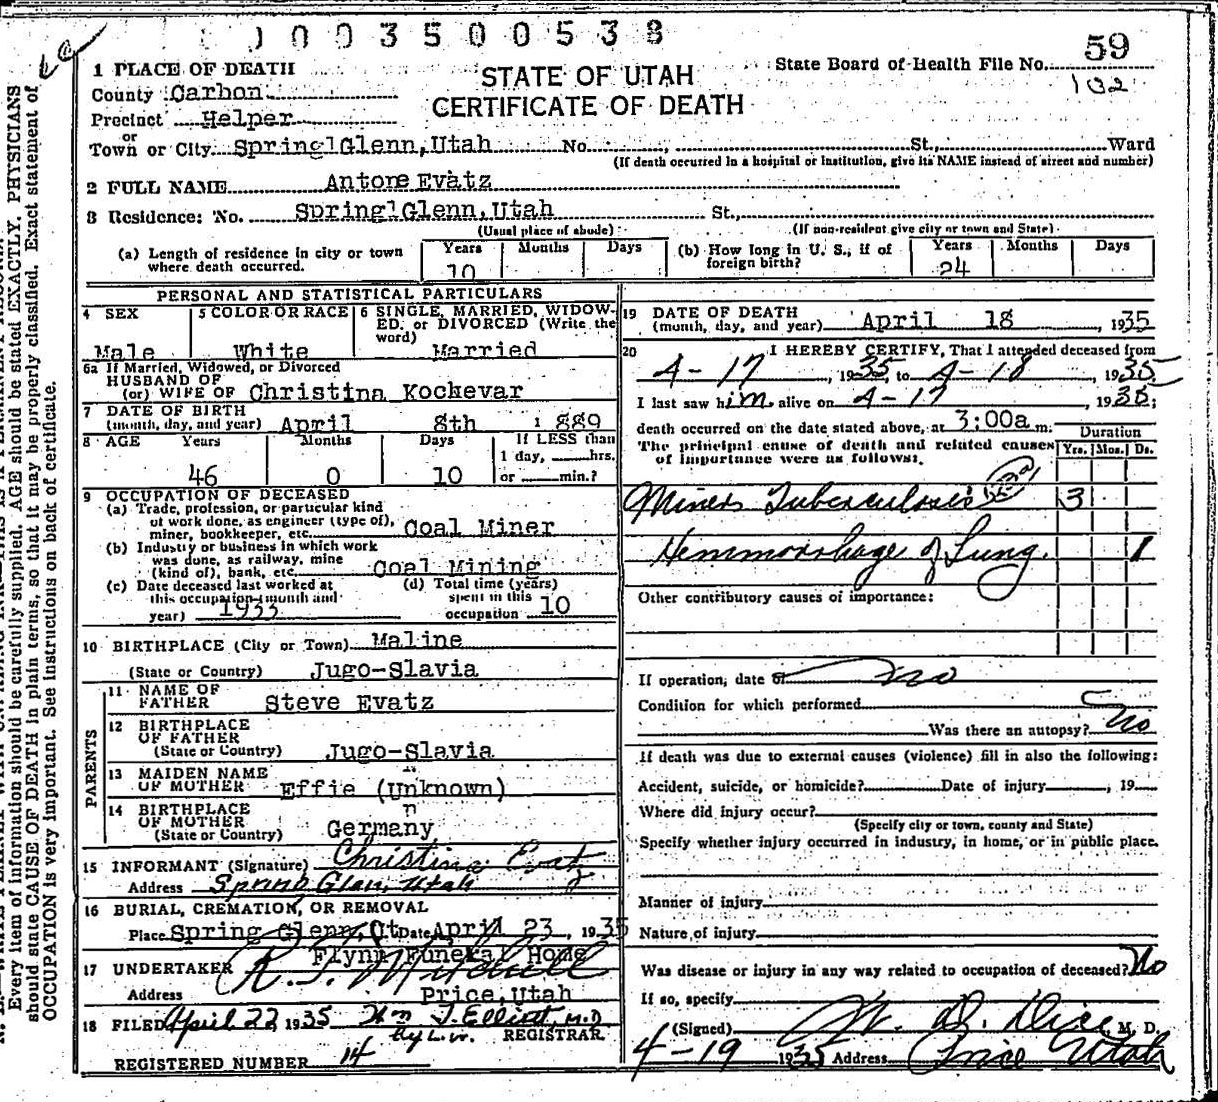 0 0 0 3 5 0 0 5 3 8
State Board of Health File No. 59
102
STATE OF UTAH
CERTIFICATE OF DEATH
1 PLACE OF DEATH
County Carbon
Precinct Helper
or
Town or City Spring Glenn, Utah No. St., Ward
(If death occurred in a hospital or institution, give its NAME instead of street and number)
2 FULL NAME Antone Evatz
3 Residence: No. Spring Glenn, Utah St.,
(Usual place of abode) (If non-resident give city or town and State)
(a) Length of residence in city or town where death occurred. Years 10 Months Days
(b) How long in U. S., if of foreign birth? Years 24 Months Days
PERSONAL AND STATISTICAL PARTICULARS
4 SEX Male
5 COLOR OR RACE White
6 SINGLE, MARRIED, WIDOWED, or DIVORCED (Write the word) Married
6a If Married, Widowed, or Divorced
HUSBAND OF
(or) WIFE OF Christina Kochevar
7 DATE OF BIRTH
(month, day, and year) April 8th 1889
8 AGE Years 46 Months 0 Days 10 If LESS than 1 day, hrs. or min.?
9 OCCUPATION OF DECEASED
(a) Trade, profession, or particular kind
of work done, as engineer (type of),
miner, bookkeeper, etc. Coal Miner
(b) Industry or business in which work
was done, as railway, mine
(kind of), bank, etc. Coal Mining
(c) Date deceased last worked at
this occupation (month and
year) 1933
(d) Total time (years)
spent in this
occupation 10
10 BIRTHPLACE (City or Town) Maline
(State or Country) Jugo-Slavia
PARENTS
11 NAME OF
FATHER Steve Evatz
12 BIRTHPLACE
OF FATHER
(State or Country) Jugo-Slavia
13 MAIDEN NAME
OF MOTHER Effie (Unknown)
14 BIRTHPLACE
OF MOTHER
(State or Country) Germany
15 INFORMANT (Signature) Christina Evatz
Address Spring Glen, Utah
16 BURIAL, CREMATION, OR REMOVAL
Place Spring Glenn, Ut Date April 23, 1935
Flynn Funeral Home
17 UNDERTAKER R. T. Mitchell
Address Price, Utah
18 FILED April 22 1935 Wm J. Elliot M.D
By L.W. REGISTRAR
REGISTERED NUMBER 14
19 DATE OF DEATH
(month, day, and year) April 18, 1935
20 I HEREBY CERTIFY, That I attended deceased from
4-17, 1935, to 4-18, 1935
I last saw him alive on 4-17, 1935;
death occurred on the date stated above, at 3:00a m.
The principal cause of death and related causes
of importance were as follows:
Duration
Yrs. Mos. Ds.
Miners Tuberculosis 3
Hemmorrhage of Lung. 1
Other contributory causes of importance:
If operation, date of no
Condition for which performed
Was there an autopsy? No
If death was due to external causes (violence) fill in also the following:
Accident, suicide, or homicide? Date of injury, 19
Where did injury occur?
(Specify city or town, county and State)
Specify whether injury occurred in industry, in home, or in public place.
Manner of injury
Nature of injury
Was disease or injury in any way related to occupation of deceased? No
If so, specify
(Signed) , M. D.
4-19 1935 Address Price Utah
Every item of information should be carefully supplied. AGE should be stated EXACTLY. PHYSICIANS
should state CAUSE OF DEATH in plain terms, so that it may be properly classified. Exact statement of
OCCUPATION is very important. See instructions on back of certificate.